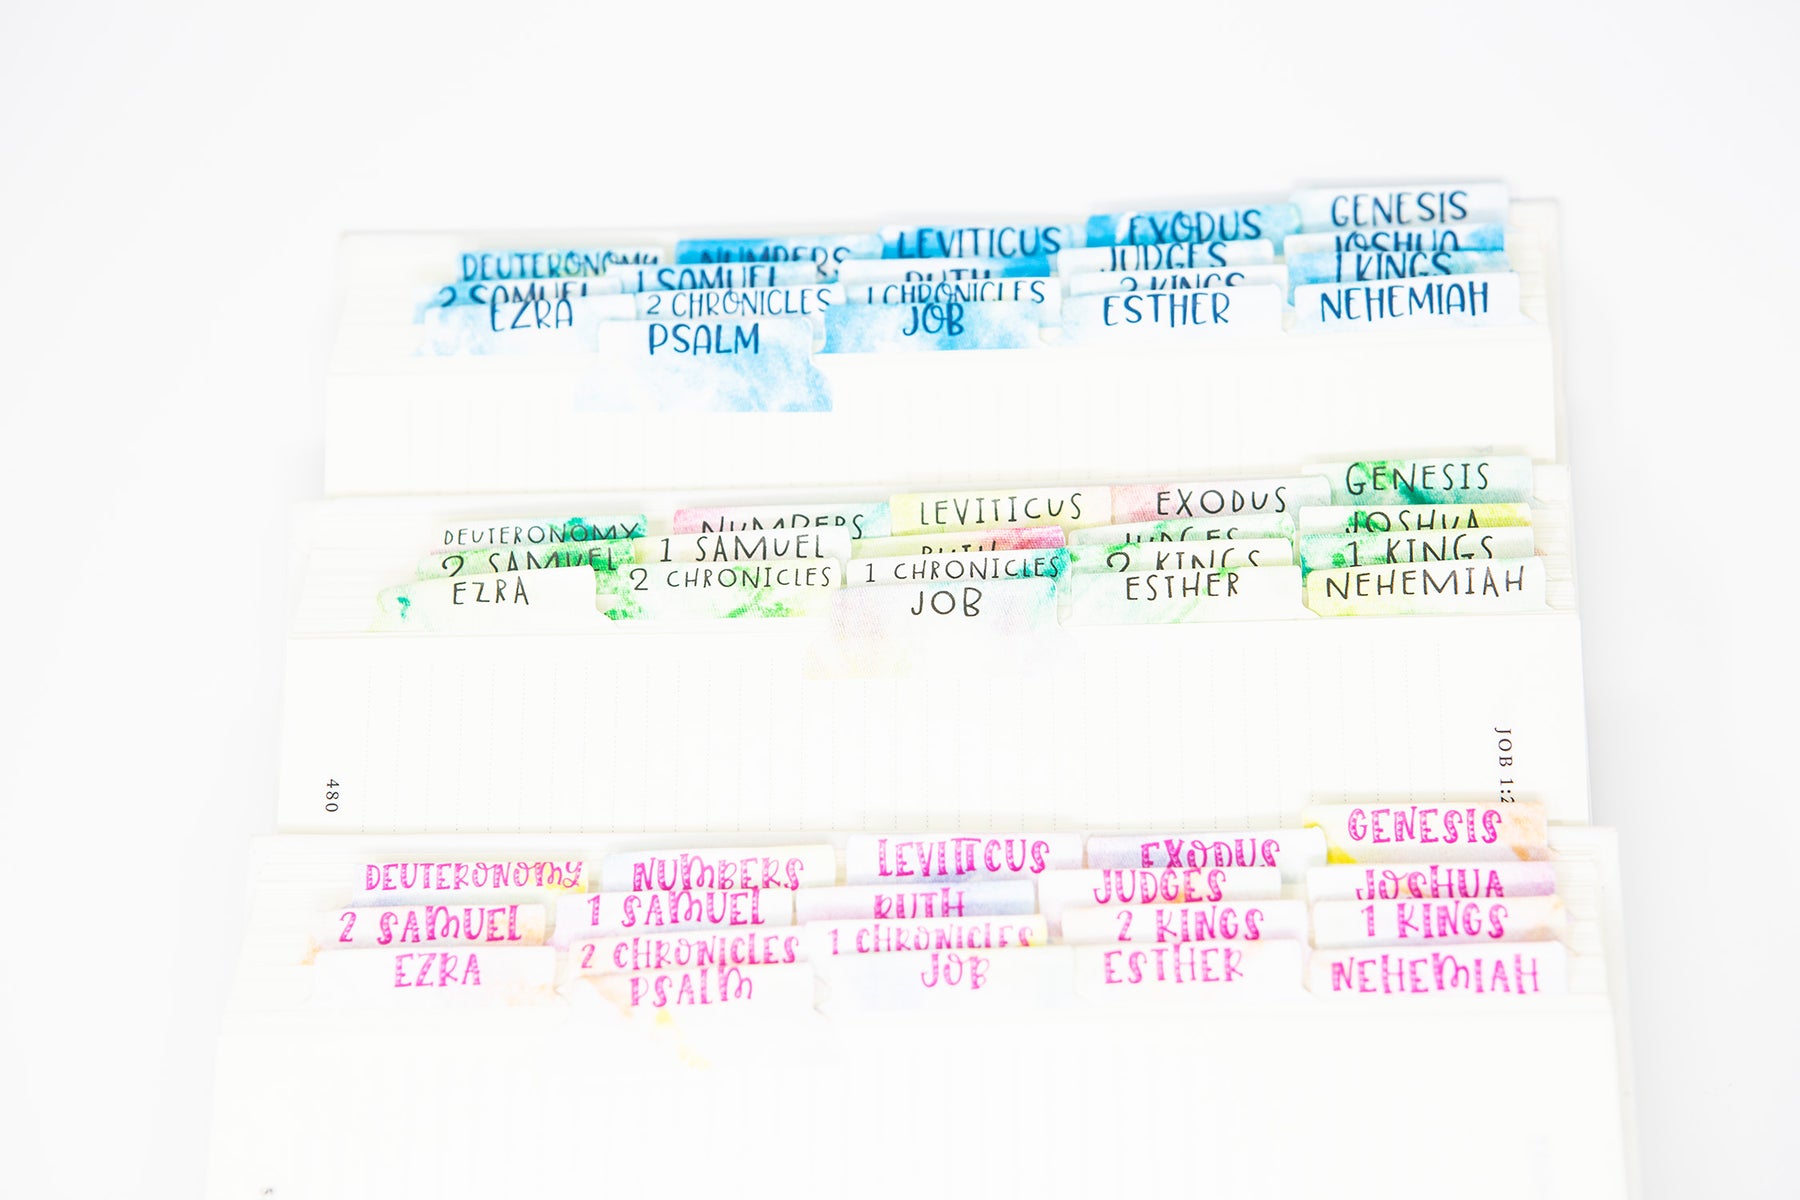 GENESIS
EXODUS
LEVITICUS
NUMBERS
DEUTERONOMY
JOSHUA
JUDGES
RUTH
1 SAMUEL
2 SAMUEL
1 KINGS
2 KINGS
1 CHRONICLES
2 CHRONICLES
EZRA
NEHEMIAH
ESTHER
JOB
PSALM
GENESIS
EXODUS
LEVITICUS
NUMBERS
DEUTERONOMY
JOSHUA
JUDGES
RUTH
1 SAMUEL
2 SAMUEL
1 KINGS
2 KINGS
1 CHRONICLES
2 CHRONICLES
EZRA
NEHEMIAH
ESTHER
JOB
JOB 1:2
480
GENESIS
EXODUS
LEVITICUS
NUMBERS
DEUTERONOMY
JOSHUA
JUDGES
RUTH
1 SAMUEL
2 SAMUEL
1 KINGS
2 KINGS
1 CHRONICLES
2 CHRONICLES
EZRA
NEHEMIAH
ESTHER
JOB
PSALM